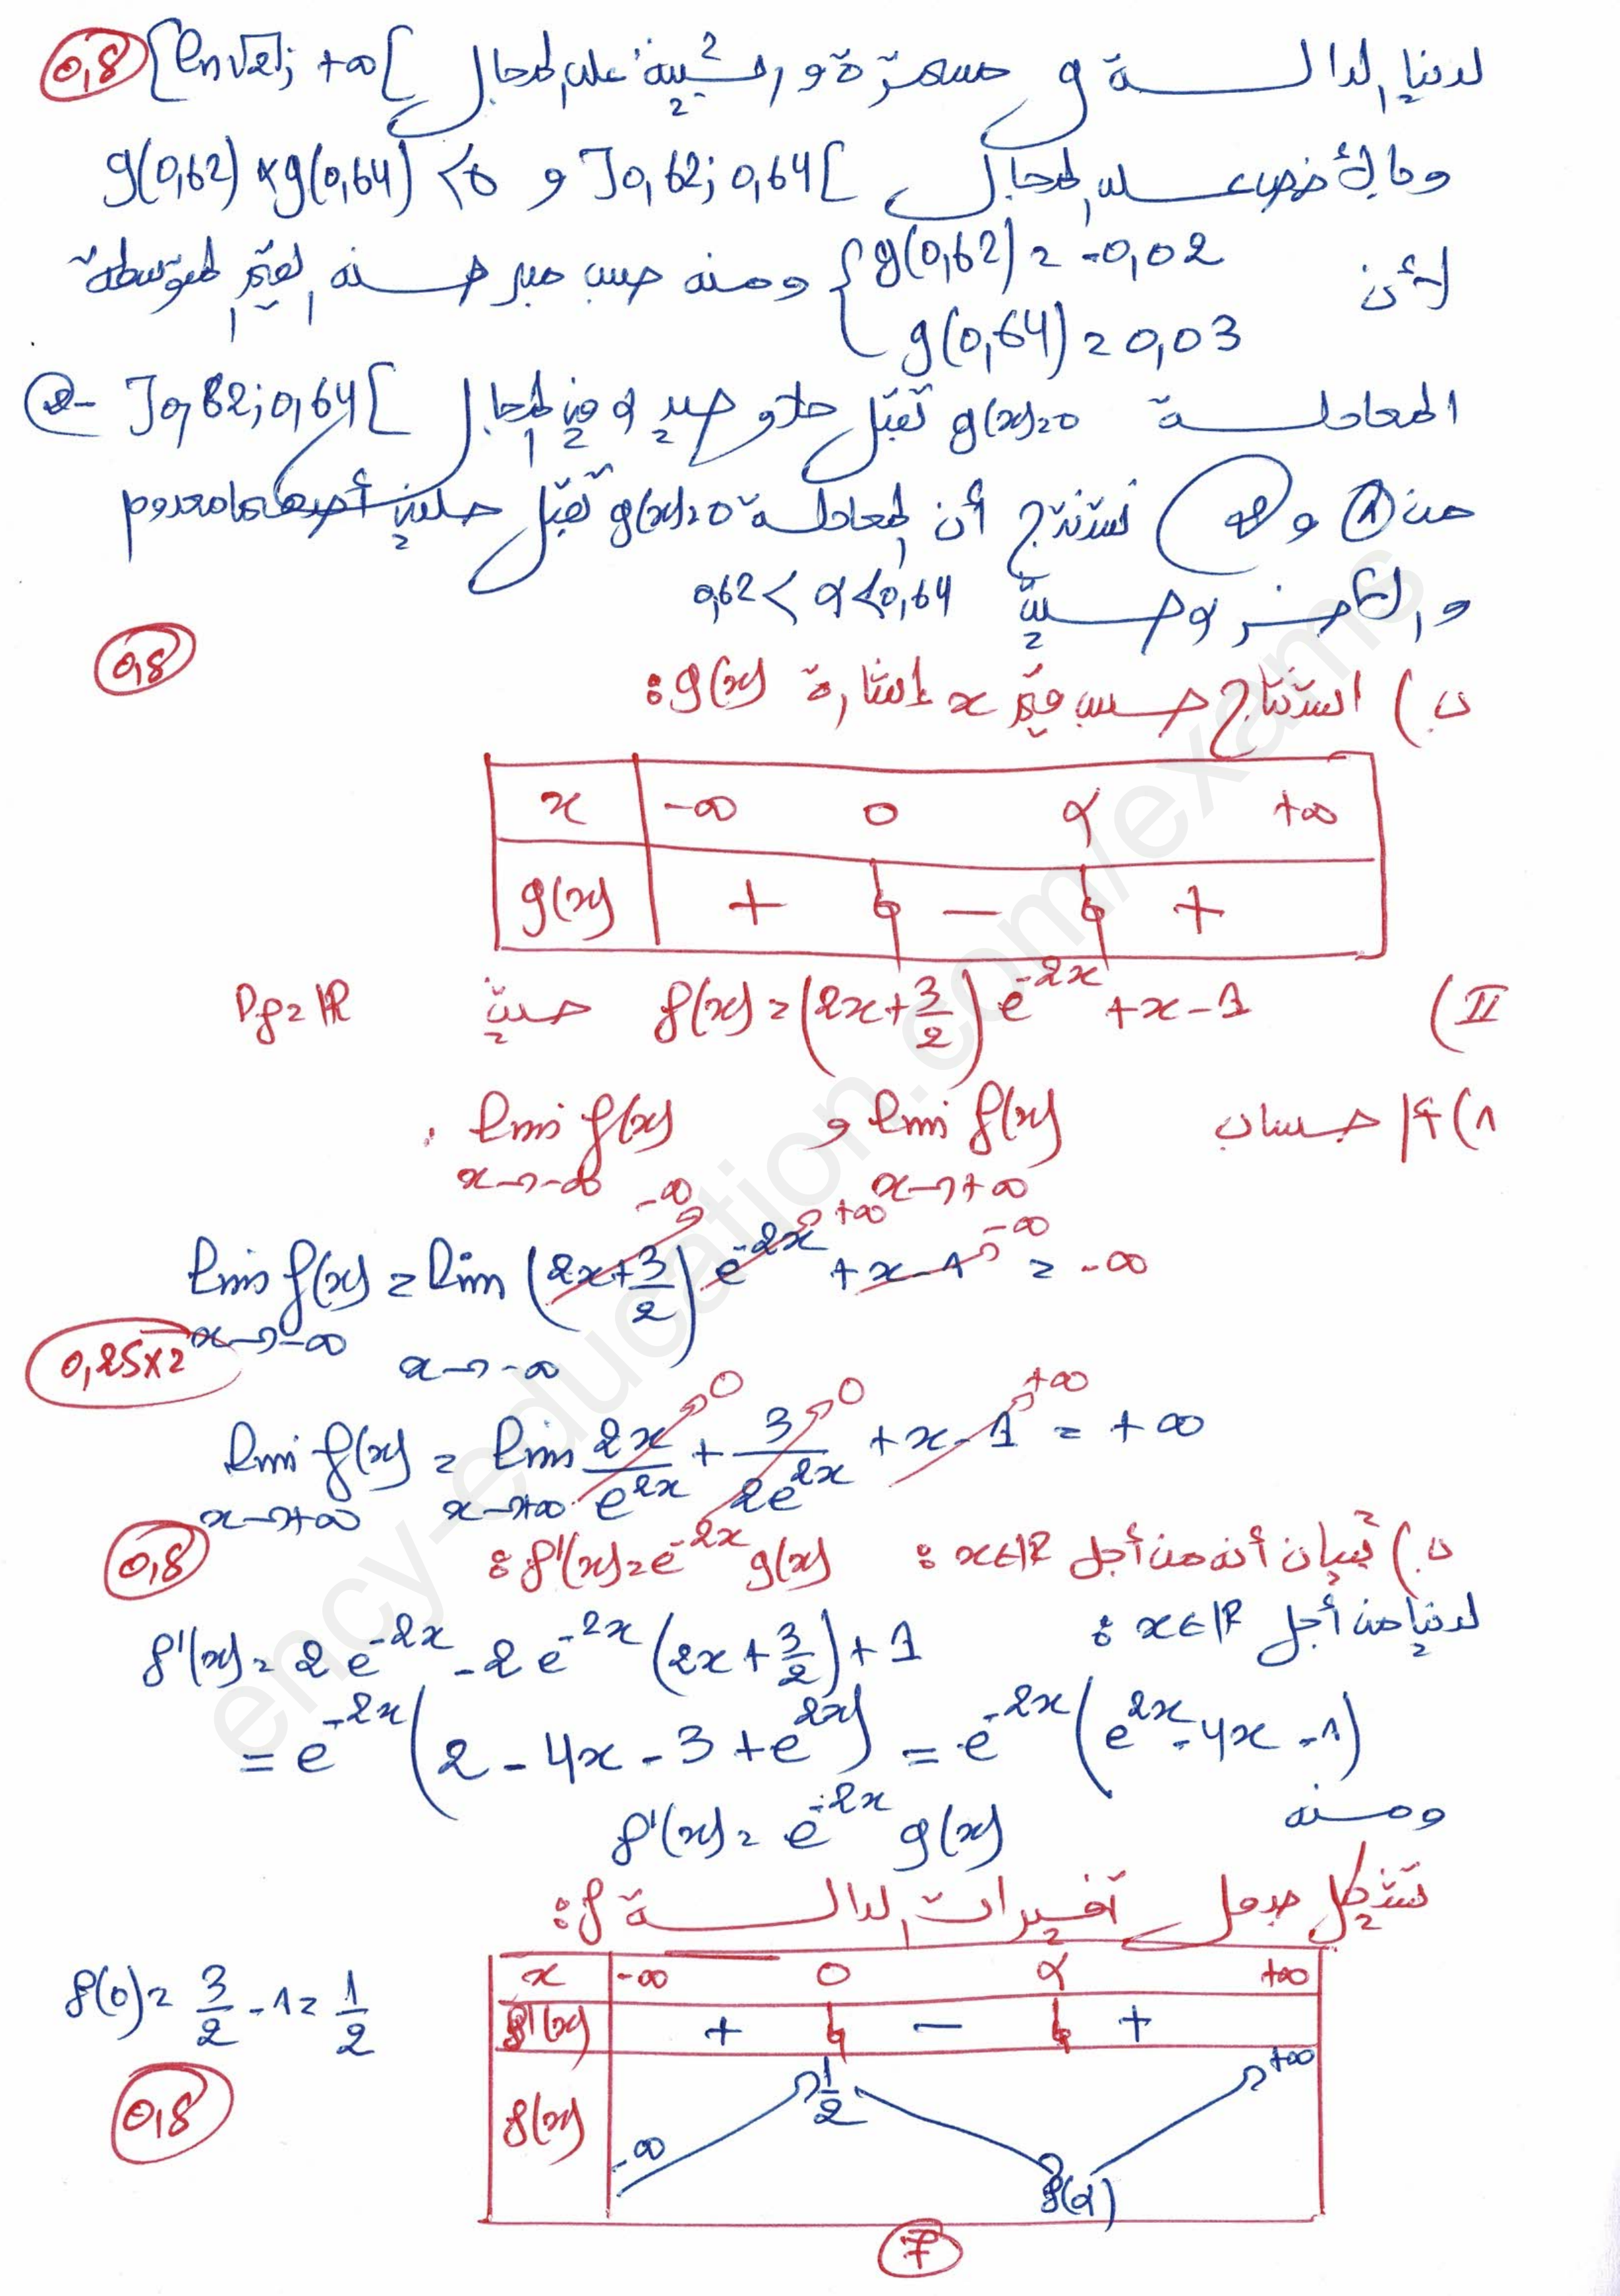 لدينا الدالة g مستمرة و رتيبة على المجال [ln√2; +∞[ 0,8
وبالأخص على المجال ]0,62; 0,64[ و g(0,62)×g(0,64)<0
لأن { g(0,62)=-0,02 ومنه حسب مبرهنة القيم المتوسطة
g(0,64)=0,03
المعادلة g(x)=0 تقبل حلا وحيد α في المجال ]0,62; 0,64[ -②
من ① و ② نستنتج أن المعادلة g(x)=0 تقبل حلين أحدهما معدوم
و الآخر α حيث 0,62<α<0,64
0,8
ب) استنتاج حسب قيم x إشارة g(x):
x -∞ 0 α +∞
g(x) + 0 - 0 +
II) f(x)=(2x+3/2)e^{-2x}+x-1 حيث Df=ℝ
1) أ/ حساب lim_{x→+∞} f(x) و lim_{x→-∞} f(x) .
lim_{x→-∞} f(x)=lim_{x→-∞} (2x+3/2)^{→-∞} e^{-2x →+∞} +x-1^{→-∞} = -∞
0,25×2
lim_{x→+∞} f(x)=lim_{x→+∞} 2x/e^{2x}^{→0} + 3/2e^{2x}^{→0} +x-1^{→+∞} = +∞
ب) تبيان أنه من أجل x∈ℝ : f'(x)=e^{-2x}g(x) : 0,8
لدينا من أجل x∈ℝ :
f'(x)=2e^{-2x}-2e^{-2x}(2x+3/2)+1
=e^{-2x}(2-4x-3+e^{2x})=e^{-2x}(e^{2x}-4x-1)
ومنه
f'(x)=e^{-2x}g(x)
تشكيل جدول تغيرات الدالة f:
x -∞ 0 α +∞
f'(x) + 0 - 0 +
f(x) -∞ 1/2 f(α) +∞
f(0)=3/2-1=1/2
0,8
7
ency-education.com/exams